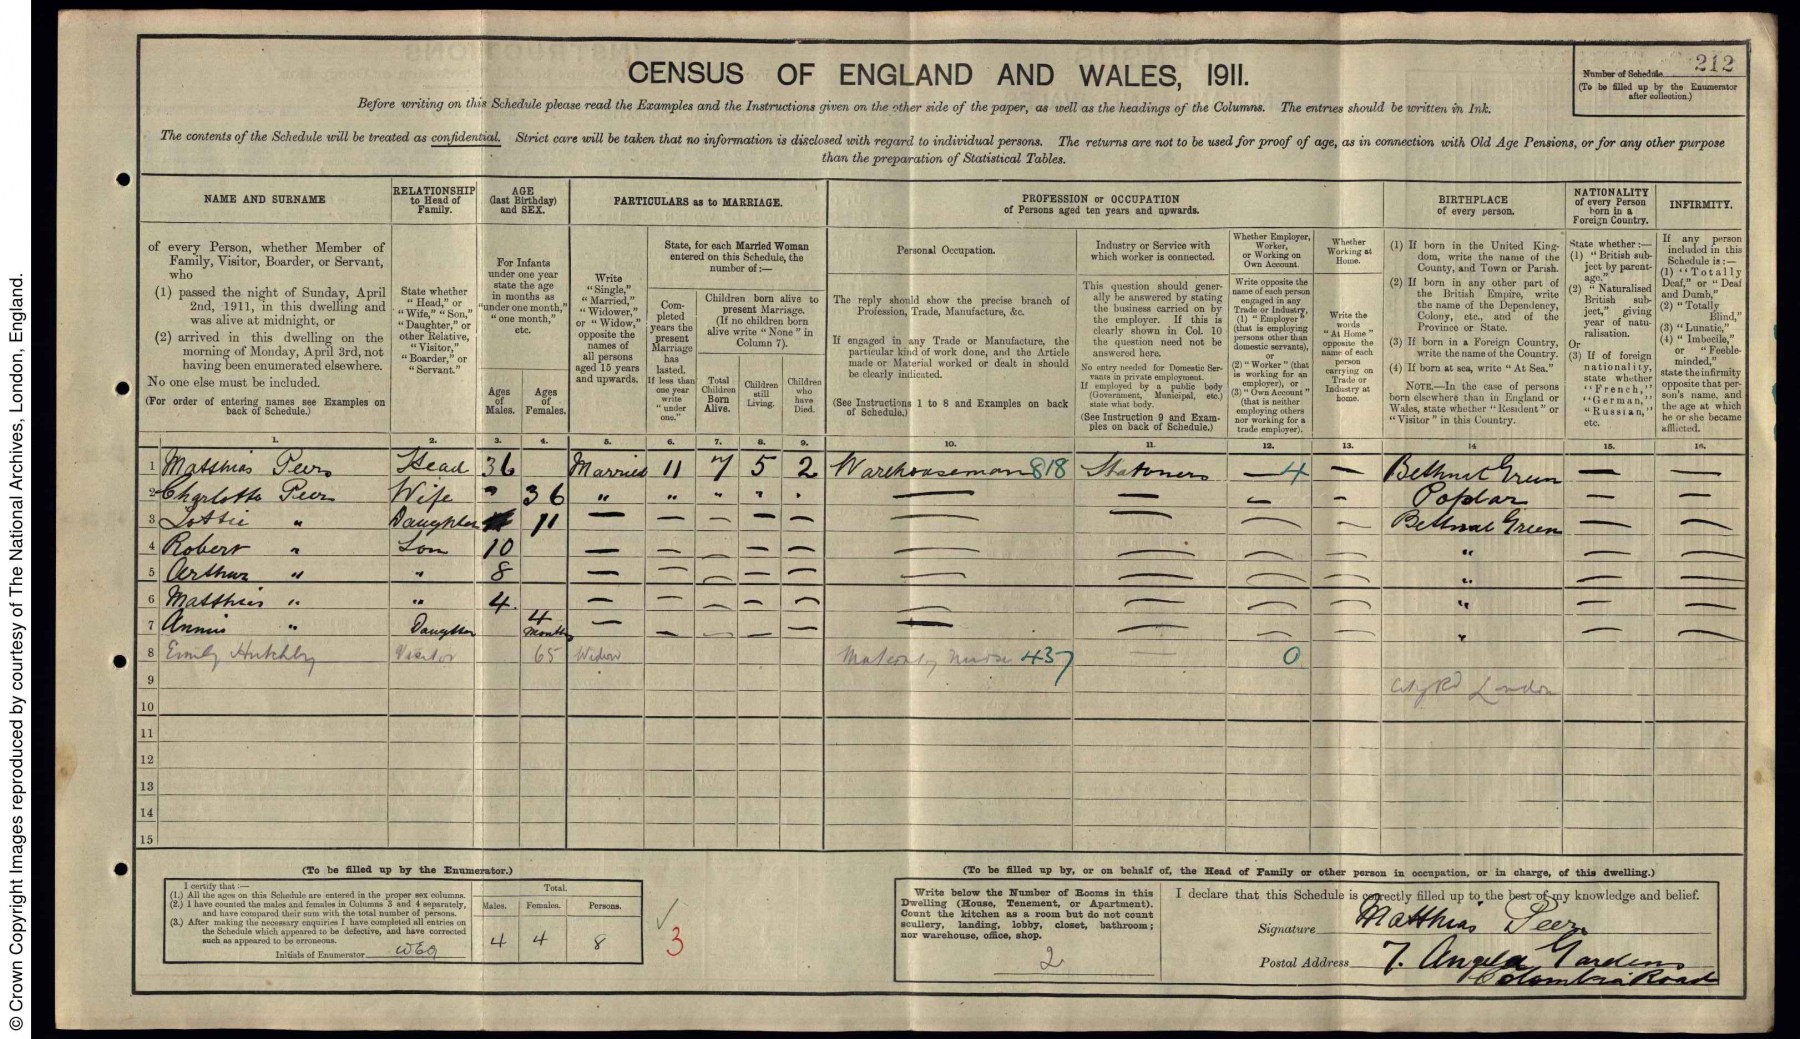 © Crown Copyright Images reproduced by courtesy of The National Archives, London, England.
CENSUS OF ENGLAND AND WALES, 1911.
Number of Schedule 212
(To be filled up by the Enumerator
after collection.)
Before writing on this Schedule please read the Examples and the Instructions given on the other side of the paper, as well as the headings of the Columns. The entries should be written in Ink.
The contents of the Schedule will be treated as confidential. Strict care will be taken that no information is disclosed with regard to individual persons. The returns are not to be used for proof of age, as in connection with Old Age Pensions, or for any other purpose
than the preparation of Statistical Tables.
NAME AND SURNAME
of every Person, whether Member of
Family, Visitor, Boarder, or Servant,
who
(1) passed the night of Sunday, April
2nd, 1911, in this dwelling and
was alive at midnight, or
(2) arrived in this dwelling on the
morning of Monday, April 3rd, not
having been enumerated elsewhere.
No one else must be included.
(For order of entering names see Examples on
back of Schedule.)
RELATIONSHIP
to Head of
Family.
State whether
"Head," or
"Wife," "Son,"
"Daughter," or
other Relative,
"Visitor,"
"Boarder," or
"Servant."
AGE
(last Birthday)
and SEX.
For Infants
under one year
state the age
in months as
"under one month,"
"one month,"
etc.
Ages
of
Males.
Ages
of
Females.
PARTICULARS as to MARRIAGE.
Write
"Single,"
"Married,"
"Widower,"
or "Widow,"
opposite the
names of
all persons
aged 15 years
and upwards.
State, for each Married Woman
entered on this Schedule, the
number of:—
Com-
pleted
years the
present
Marriage
has
lasted.
If less than
one year
write
"under
one."
Children born alive to
present Marriage.
(If no children born
alive write "None" in
Column 7).
Total
Children
Born
Alive.
Children
still
Living.
Children
who
have
Died.
PROFESSION or OCCUPATION
of Persons aged ten years and upwards.
Personal Occupation.
The reply should show the precise branch of
Profession, Trade, Manufacture, &c.
If engaged in any Trade or Manufacture, the
particular kind of work done, and the Article
made or Material worked or dealt in should
be clearly indicated.
(See Instructions 1 to 8 and Examples on back
of Schedule.)
Industry or Service with
which worker is connected.
This question should gener-
ally be answered by stating
the business carried on by
the employer. If this is
clearly shown in Col. 10
the question need not be
answered here.
No entry needed for Domestic Ser-
vants in private employment.
If employed by a public body
(Government, Municipal, etc.)
state what body.
(See Instruction 9 and Exam-
ples on back of Schedule.)
Whether Employer,
Worker,
or Working on
Own Account.
Write opposite the
name of each person
engaged in any
Trade or Industry,
(1) "Employer"
(that is employing
persons other than
domestic servants),
or
(2) "Worker" (that
is working for an
employer), or
(3) "Own Account"
(that is neither
employing others
nor working for a
trade employer).
Whether
Working at
Home.
Write the
words
"At Home"
opposite the
name of each
person
carrying on
Trade or
Industry at
home.
BIRTHPLACE
of every person.
(1) If born in the United King-
dom, write the name of the
County, and Town or Parish.
(2) If born in any other part of
the British Empire, write
the name of the Dependency,
Colony, etc., and of the
Province or State.
(3) If born in a Foreign Country,
write the name of the Country.
(4) If born at sea, write "At Sea."
NOTE.—In the case of persons
born elsewhere than in England or
Wales, state whether "Resident" or
"Visitor" in this Country.
NATIONALITY
of every Person
born in a
Foreign Country.
State whether:—
(1) "British sub-
ject by parent-
age,"
(2) "Naturalised
British sub-
ject," giving
year of natu-
ralisation.
Or
(3) If of foreign
nationality,
state whether
"French,"
"German,"
"Russian,"
etc.
INFIRMITY.
If any person
included in this
Schedule is:—
(1) "Totally
Deaf," or "Deaf
and Dumb,"
(2) "Totally
Blind,"
(3) "Lunatic,"
(4) "Imbecile,"
or "Feeble-
minded,"
state the infirmity
opposite that per-
son's name, and
the age at which
he or she became
afflicted.
1. 2. 3. 4. 5. 6. 7. 8. 9. 10. 11. 12. 13. 14 15. 16.
1 Matthias Peers Head 36 Married 11 7 5 2 Warehouseman 818 Stationers — 4 — Bethnal Green — —
2 Charlotte Peers Wife " 36 " " " " " — — — — Poplar — —
3 Lottie " Daughter 11 — — — — — — — — — Bethnal Green — —
4 Robert " Son 10 — — — — — — — — — " — —
5 Arthur " " 8 — — — — — — — — — " — —
6 Matthias " " 4 — — — — — — — — — " — —
7 Annie " Daughter 4 months — — — — — — — — — " — —
8 Emily Hutchby Visitor 65 Widow Maternity Nurse 437 — 0
9 City Rd London
10
11
12
13
14
15
(To be filled up by the Enumerator.)
I certify that:—
(1.) All the ages on this Schedule are entered in the proper sex columns.
(2.) I have counted the males and females in Columns 3 and 4 separately,
and have compared their sum with the total number of persons.
(3.) After making the necessary enquiries I have completed all entries on
the Schedule which appeared to be defective, and have corrected
such as appeared to be erroneous.
Initials of Enumerator
Total.
Males. Females. Persons.
4 4 8
3
(To be filled up by, or on behalf of, the Head of Family or other person in occupation, or in charge, of this dwelling.)
Write below the Number of Rooms in this
Dwelling (House, Tenement, or Apartment).
Count the kitchen as a room but do not count
scullery, landing, lobby, closet, bathroom;
nor warehouse, office, shop.
2
I declare that this Schedule is correctly filled up to the best of my knowledge and belief.
Signature Matthias Peers
Postal Address 7. Angela Gardens
Columbia Road